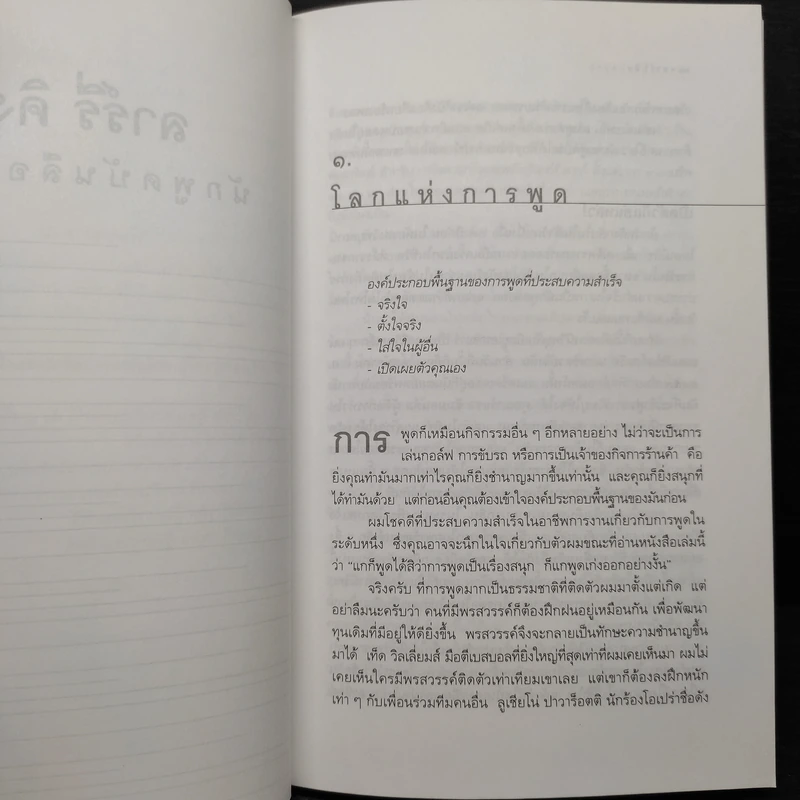 ลารี่ คิง
นักพูดบันลือ
๑.
โลกแห่งการพูด
องค์ประกอบพื้นฐานของการพูดที่ประสบความสำเร็จ
- จริงใจ
- ตั้งใจจริง
- ใส่ใจในผู้อื่น
- เปิดเผยตัวคุณเอง
การ พูดก็เหมือนกิจกรรมอื่น ๆ อีกหลายอย่าง ไม่ว่าจะเป็นการ
เล่นกอล์ฟ การขับรถ หรือการเป็นเจ้าของกิจการร้านค้า คือ
ยิ่งคุณทำมันมากเท่าไรคุณก็ยิ่งชำนาญมากขึ้นเท่านั้น และคุณก็ยิ่งสนุกที่
ได้ทำมันด้วย แต่ก่อนอื่นคุณต้องเข้าใจองค์ประกอบพื้นฐานของมันก่อน
ผมโชคดีที่ประสบความสำเร็จในอาชีพการงานเกี่ยวกับการพูดใน
ระดับหนึ่ง ซึ่งคุณอาจจะนึกในใจเกี่ยวกับตัวผมขณะที่อ่านหนังสือเล่มนี้
ว่า “แกก็พูดได้สิว่าการพูดเป็นเรื่องสนุก ก็แกพูดเก่งออกอย่างงั้น”
จริงครับ ที่การพูดมากเป็นธรรมชาติที่ติดตัวผมมาตั้งแต่เกิด แต่
อย่าลืมนะครับว่า คนที่มีพรสวรรค์ก็ต้องฝึกฝนอยู่เหมือนกัน เพื่อพัฒนา
ทุนเดิมที่มีอยู่ให้ดียิ่งขึ้น พรสวรรค์จึงจะกลายเป็นทักษะความชำนาญขึ้น
มาได้ เท็ด วิลเลี่ยมส์ มือตีเบสบอลที่ยิ่งใหญ่ที่สุดเท่าที่ผมเคยเห็นมา ผมไม่
เคยเห็นใครมีพรสวรรค์ติดตัวเท่าเทียมเขาเลย แต่เขาก็ต้องลงฝึกหนัก
เท่า ๆ กับเพื่อนร่วมทีมคนอื่น ลูเชียโน่ ปาวาร็อตติ นักร้องโอเปร่าชื่อดัง